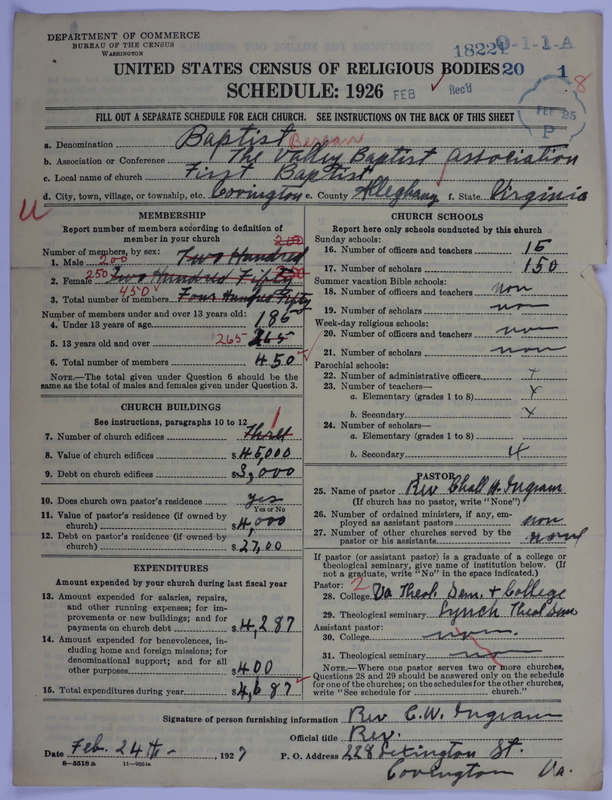 DEPARTMENT OF COMMERCE
BUREAU OF THE CENSUS
WASHINGTON
18224 0-1-1-A
UNITED STATES CENSUS OF RELIGIOUS BODIES 20 1
8
SCHEDULE: 1926 FEB Rec'd
FEB 25
P
FILL OUT A SEPARATE SCHEDULE FOR EACH CHURCH. SEE INSTRUCTIONS ON THE BACK OF THIS SHEET
a. Denomination Baptist
b. Association or Conference The Valley Baptist Association
c. Local name of church First Baptist
d. City, town, village, or township, etc. Covington e. County Alleghany f. State Virginia
MEMBERSHIP
Report number of members according to definition of
member in your church
Number of members, by sex: 200
1. Male 200 Two Hundred
2. Female 250 Two Hundred Fifty 250
450
3. Total number of members Four Hundred Fifty
Number of members under and over 13 years old:
4. Under 13 years of age 185
5. 13 years old and over 265 265
6. Total number of members 450
NOTE.—The total given under Question 6 should be the
same as the total of males and females given under Question 3.
CHURCH BUILDINGS
See instructions, paragraphs 10 to 12
1
7. Number of church edifices Three
8. Value of church edifices $45,000
9. Debt on church edifices $3,000
10. Does church own pastor's residence yes
Yes or No
11. Value of pastor's residence (if owned by
church) $4,000
12. Debt on pastor's residence (if owned by
church) $27,00
EXPENDITURES
Amount expended by your church during last fiscal year
13. Amount expended for salaries, repairs,
and other running expenses; for im-
provements or new buildings; and for
payments on church debt $4,287
14. Amount expended for benevolences, in-
cluding home and foreign missions; for
denominational support; and for all
other purposes $400
15. Total expenditures during year $4,687
CHURCH SCHOOLS
Report here only schools conducted by this church
Sunday schools:
16. Number of officers and teachers 15
17. Number of scholars 150
Summer vacation Bible schools:
18. Number of officers and teachers non
19. Number of scholars non
Week-day religious schools:
20. Number of officers and teachers non
21. Number of scholars non
Parochial schools:
22. Number of administrative officers x
23. Number of teachers—
a. Elementary (grades 1 to 8) x
b. Secondary x
24. Number of scholars—
a. Elementary (grades 1 to 8)
b. Secondary
PASTOR
25. Name of pastor Rev Chall H. Ingram
(If church has no pastor, write "None")
26. Number of ordained ministers, if any, em-
ployed as assistant pastors non
27. Number of other churches served by the
pastor or his assistants
If pastor (or assistant pastor) is a graduate of a college or
theological seminary, give name of institution below. (If
not a graduate, write "No" in the space indicated.)
Pastor: 2
28. College Va Theol. Sem. + College
29. Theological seminary Lynch Theol Sem
Assistant pastor:
30. College non.
31. Theological seminary no
NOTE.—Where one pastor serves two or more churches,
Questions 28 and 29 should be answered only on the schedule
for one of the churches; on the schedules for the other churches,
write "See schedule for church."
Signature of person furnishing information Rev C.W. Ingram
Official title Rev.
Date Feb. 24th 1927 P. O. Address 228 Lexington St.
8—5518a Covington Va.